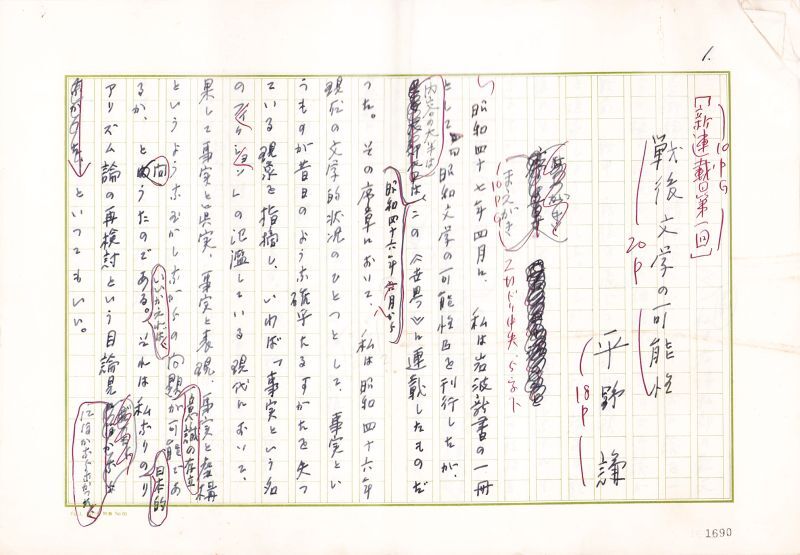 1.
[新連載第一回]
10P G
戦後文学の可能性
20P
平野 謙
18P
まえがき
10P G
2行ドリ中央、5字下ゲ
昭和四十七年四月に、私は岩波新書の一冊
として『昭和文学の可能性』を刊行したが、
内容の大半は昭和四十六年 月から この《世界》に連載したものだ
った。その序章において、私は昭和四十六年
現在の文学的状況のひとつとして、事実とい
うものが昔日のような確乎たるすがたを失っ
ている現象を指摘し、いわば「事実という名
のフィクション」の氾濫している現代において、
果して事実と真実、事実と表現、事実と虚構
というようなむかしながらの問題意識の存立が可能であ
るか、と問うたのである。いいかえれば、それは私なりの日本的リ
アリズム論の再検討という目論見にほかならなかった、
といってもいい。
1690